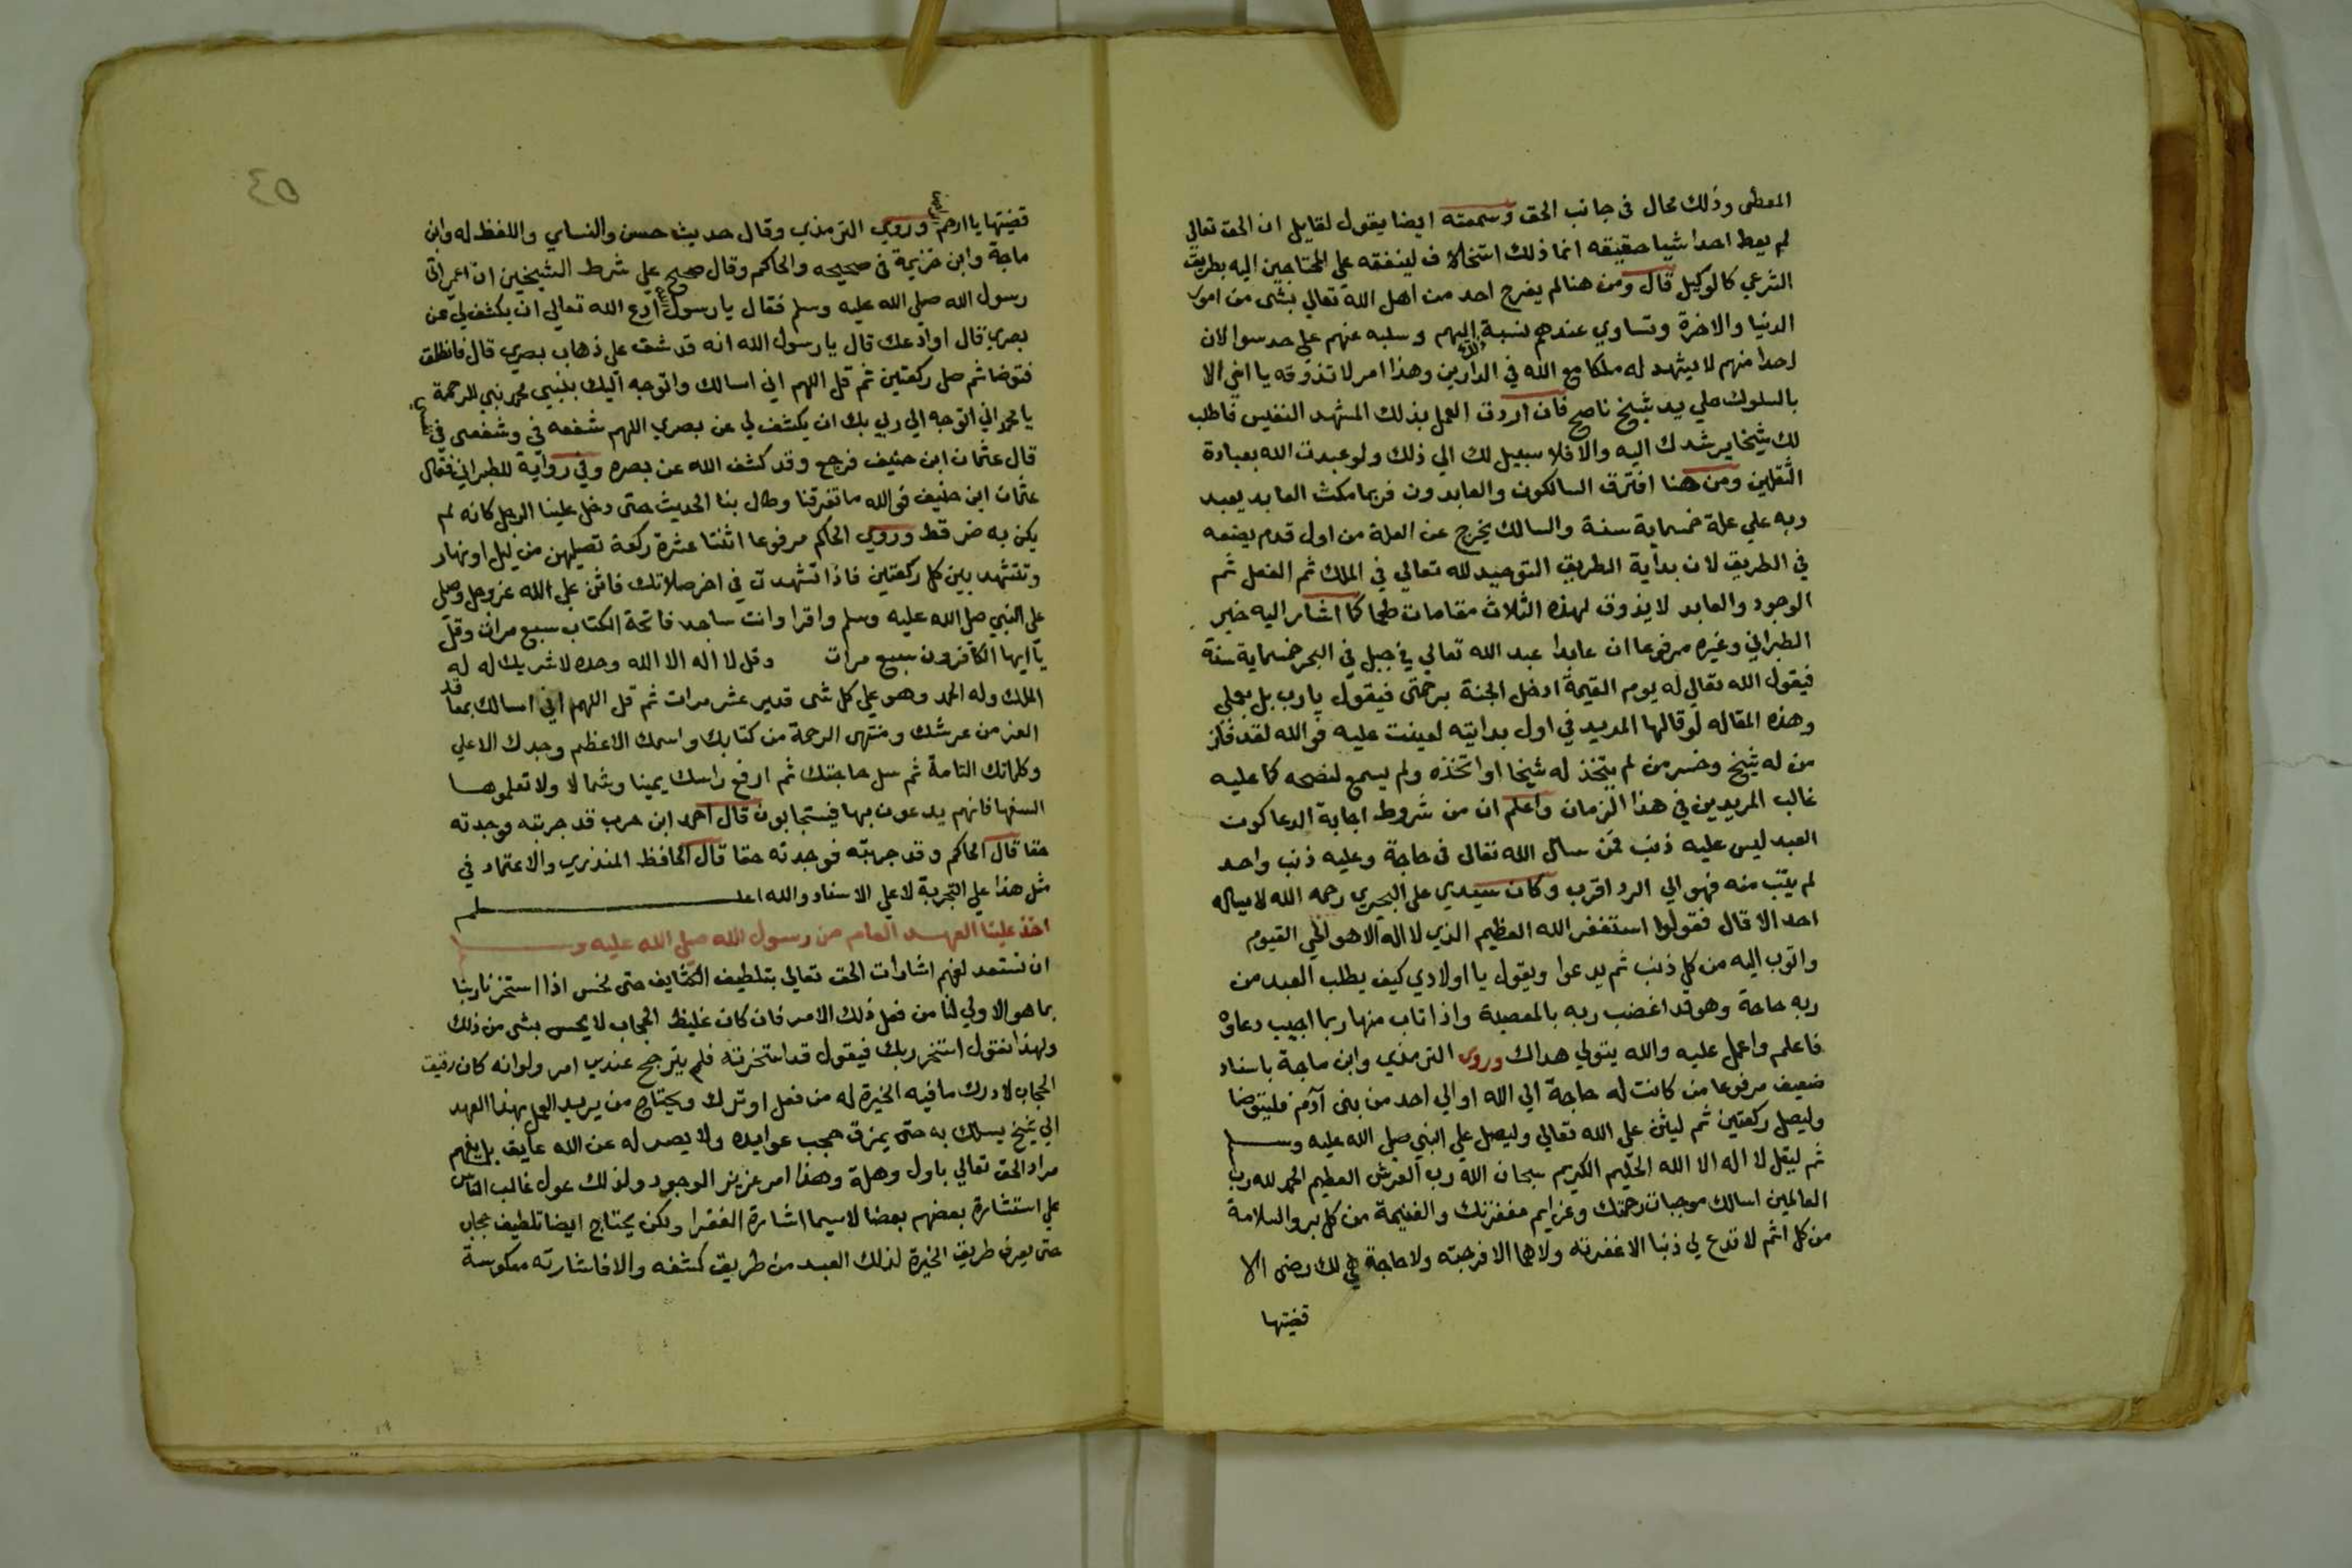 المعطى وذلك محال فى جانب الحق وسمعته ايضا يقول لقايل ان الحق تعالي
لم يعط احدا شيا حقيقه انما ذلك استخلاف لينفقه علي المحتاجين اليه بطريق
الشرعي كالوكيل قال ومن هنا لم يفرح احد من اهل الله تعالي بشى من امور
الدنيا والاخرة وتساوي عندهم نسبة اليهم وسلبه عنهم علي حد سوا لان
احدا منهم لا يشهد له ملكا مع الله في الدارين وهذا امر لا تذوقه يا اخي الا
بالسلوك علي يد شيخ ناصح فان اردت العمل بذلك المشهد النفيس فاطلب
لك شيخا يرشدك اليه والا فلا سبيل لك الي ذلك ولو عبدت الله بعبادة
الثقلين ومن هنا افترق السالكون والعابدون فربما مكث العابد يعبد
ربه علي علة خمسماية سنة والسالك يخرج عن العلة من اول قدم يضعه
في الطريق لان بداية الطريق التوحيد لله تعالي في الملك ثم الفعل ثم
الوجود والعابد لا يذوق لهذه الثلاث مقامات طعما كما اشار اليه خبر
الطبراني وغيره مرفوعا ان عابدا عبد الله تعالي في جبل في البحر خمسماية سنة
فيقول الله تعالي له يوم القيمة ادخل الجنة برحمتى فيقول يارب بل بعملي
وهذه المقاله لو قالها المريد في اول بدايته لعيبت عليه فوالله لقد فاز
من له شيخ وخسر من لم يتخذ له شيخا او اتخذه ولم يسمع لنصحه كما عليه
غالب المريدين في هذا الزمان واعلم ان من شروط اجابة الدعا كون
العبد ليس عليه ذنب فمن سال الله تعالى فى حاجة وعليه ذنب واحد
لم يتب منه فهو الي الرد اقرب وكان سيدي علي البحيري رحمه الله لا يساله
احد الا قال فقولوا استغفر الله العظيم الذي لا اله الا هو الحي القيوم
واتوب اليه من كل ذنب ثم يدعوا ويقول يا اولادي كيف يطلب العبد من
ربه حاجة وهو قد اغضب ربه بالمعصية واذا تاب منها ربما اجيب دعاوه
فاعلم واعمل عليه والله يتولي هداك وروى الترمذي وابن ماجة باسناد
ضعيف مرفوعا من كانت له حاجة الي الله او الي احد من بنى آدم فليتوضا
وليصل ركعتين ثم ليثن علي الله تعالي وليصل علي النبي صلي الله عليه وسلم
ثم ليقل لا اله الا الله الحليم الكريم سبحان الله رب العرش العظيم الحمد لله رب
العالمين اسالك موجبات رحمتك وعزايم مغفرتك والغنيمة من كل بر والسلامة
من كل اثم لا تدع لي ذنبا الا غفرته ولا هما الا فرجته ولا حاجة هي لك رضى الا
قضيتها
٤٥
قضيتها يا ارحم الراحمين وروي الترمذي وقال حديث حسن والنساي واللفظ له وابن
ماجة وابن خزيمة فى صحيحه والحاكم وقال صحيح علي شرط الشيخين ان اعمى اتى
رسول الله صلي الله عليه وسلم فقال يا رسول الله ادع الله تعالي ان يكشف لي عن
بصري قال او ادعك قال يا رسول الله انه قد شق علي ذهاب بصري قال فانطلق
فتوضا ثم صل ركعتين ثم قل اللهم اني اسالك واتوجه اليك بنبيي محمد نبي الرحمة
يا محمد اني اتوجه الي ربي بك ان يكشف لي عن بصري اللهم شفعه فى وشفعنى فى نفسى
قال عثمان ابن حنيف فرجع وقد كشف الله عن بصره وفي رواية للطبراني فقال
عثمان ابن حنيف فوالله ما تفرقنا وطال بنا الحديث حتى دخل علينا الرجل كانه لم
يكن به ضر قط وروي الحاكم مرفوعا اثنتا عشرة ركعة تصليهن من ليل او نهار
وتتشهد بين كل ركعتين فاذا تشهدت في اخر صلاتك فاثن علي الله عز وجل وصل
على النبي صلى الله عليه وسلم واقرا وانت ساجد فاتحة الكتاب سبع مرات وقل
يا ايها الكافرون سبع مرات وقل لا اله الا الله وحده لا شريك له له
الملك وله الحمد وهو علي كل شى قدير عشر مرات ثم قل اللهم اني اسالك بمعاقد
العز من عرشك ومنتهى الرحمة من كتابك واسمك الاعظم وجدك الاعلي
وكلماتك التامة ثم سل حاجتك ثم ارفع راسك يمينا وشمالا ولا تعلموها
السفها فانهم يدعون بها فيستجابون قال احمد ابن حرب قد جربته فوجدته
حقا قال الحاكم وقد جربته فوجدته حقا قال الحافظ المنذري والاعتماد في
مثل هذا علي التجربة لا علي الاسناد والله اعلم
اخذ علينا العهد العام من رسول الله صلي الله عليه وسلم
ان نستعد لفهم اشارات الحق تعالي بتلطيف الكثايف حتى نحس اذا استخرنا ربنا
بما هو الاولي لنا من فعل ذلك الامر فان كان غليظ الحجاب لا يحس بشى من ذلك
ولهذا نقول استخر ربك فيقول قد استخرته فلم يترجح عندي امر ولو انه كان رقيق
الحجاب لادرك ما فيه الخيرة له من فعل او ترك ويحتاج من يريد العمل بهذا العهد
الي شيخ يسلك به حتى يمزق حجب عوايده ولا يصير له عن الله عايق بل يفهم
مراد الحق تعالي باول وهلة وهذا امر عزيز الوجود ولذلك عول غالب الناس
علي استشارة بعضهم بعضا لاسيما اشارة الفقرا ولكن يحتاج ايضا تلطيف حجاب
حتى يعرف طريق الخيرة لذلك العبد من طريق كشفه والا فاشارته معكوسة